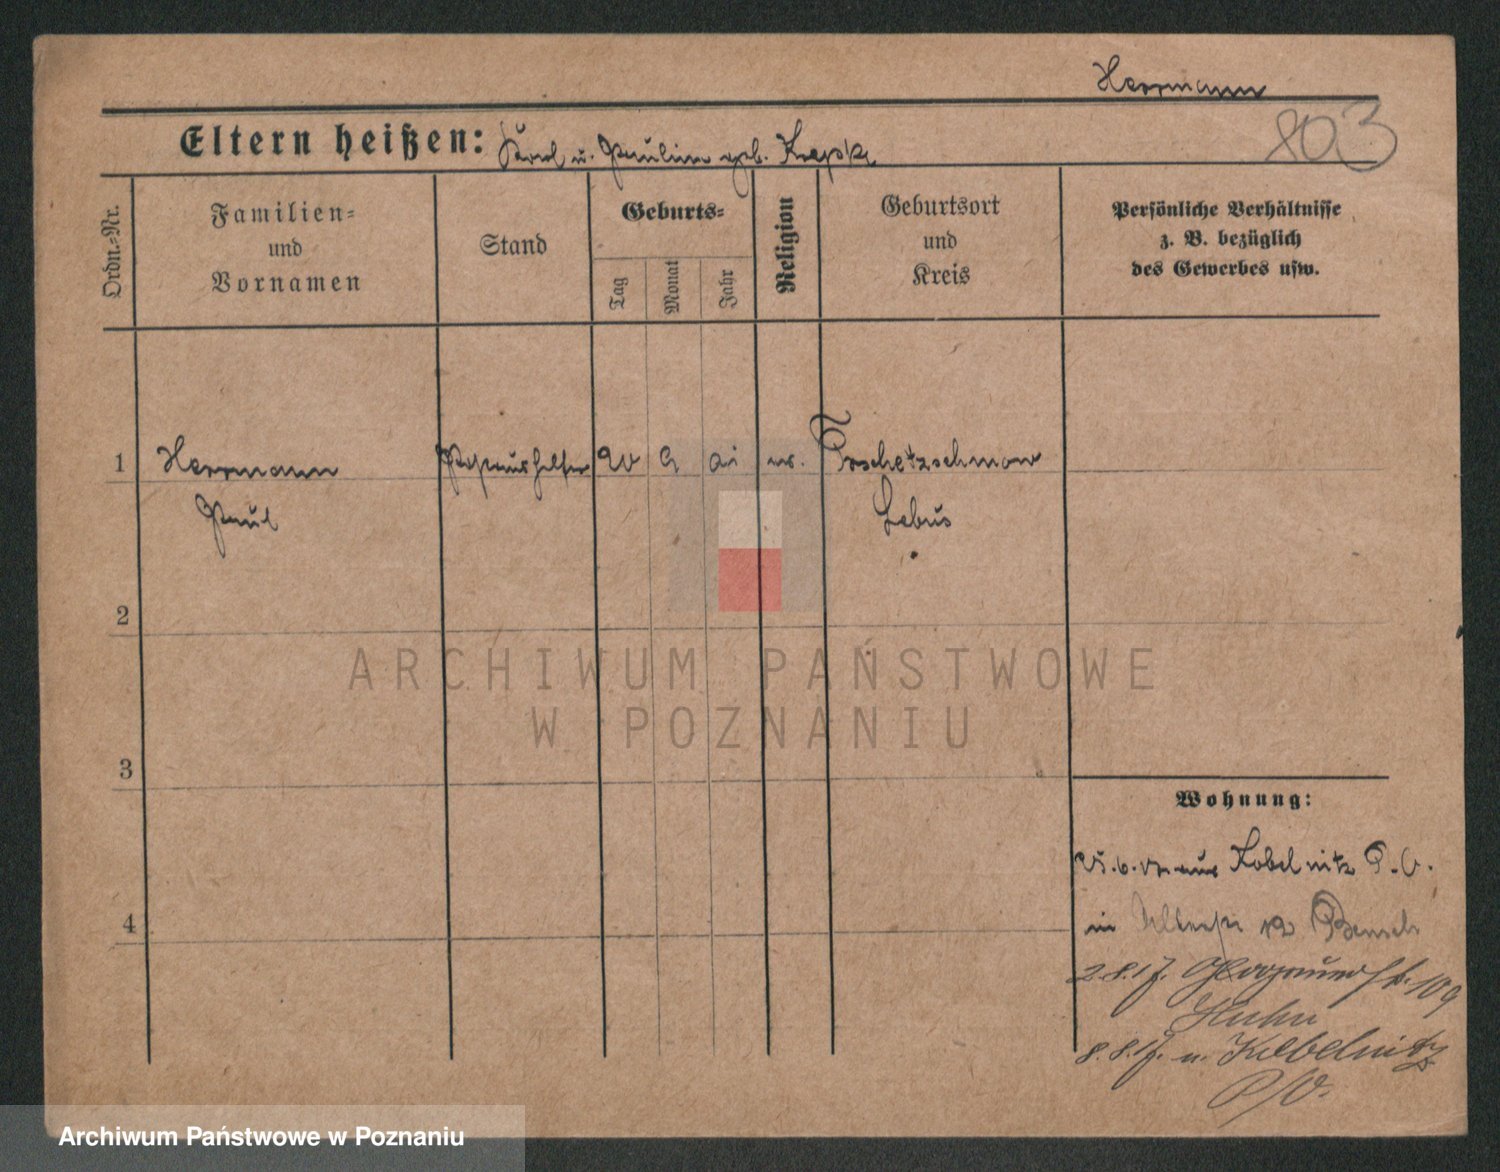 Herrmann
803
Eltern heißen: Karl u. Paulina geb. Kopske
Ordn.-Nr.
Familien-
und
Vornamen
Stand
Geburts-
Tag
Monat
Jahr
Religion
Geburtsort
und
Kreis
Persönliche Verhältnisse
z. B. bezüglich
des Gewerbes usw.
1 Herrmann
Tzschetzschnow
Paul
Lebus
2
ARCHIWUM PAŃSTWOWE
W POZNANIU
3
Wohnung:
aus Kobelnitz P. O.
in
2.8.17. Glogauerstr. 109
Huhn
8.8.17. n. Kobelnitz
P/O.
4
Archiwum Państwowe w Poznaniu